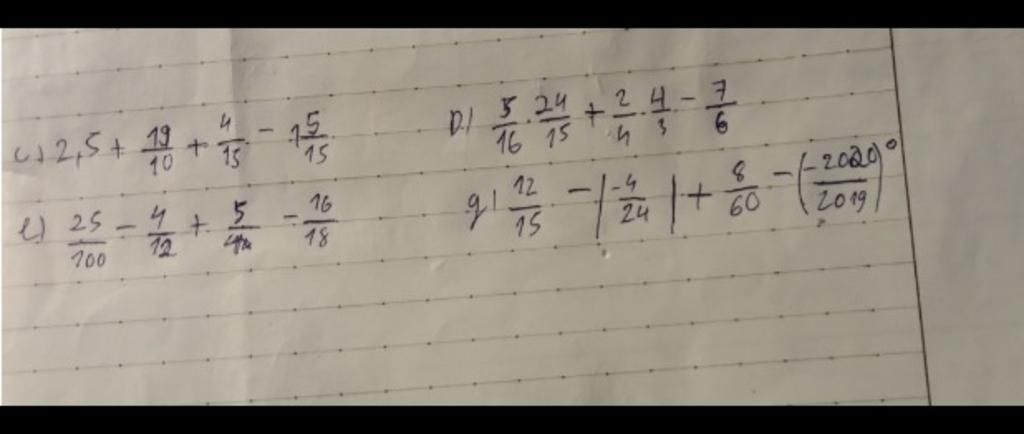 c) 2,5 + 19/10 + 4/15 - 1 5/15
D) 5/16 . 24/15 + 2/4 . 4/3 - 7/6
e) 25/100 - 4/12 + 5/ - 16/18
g) 12/15 - |-4/24| + 8/60 - (-2020/2019)⁰